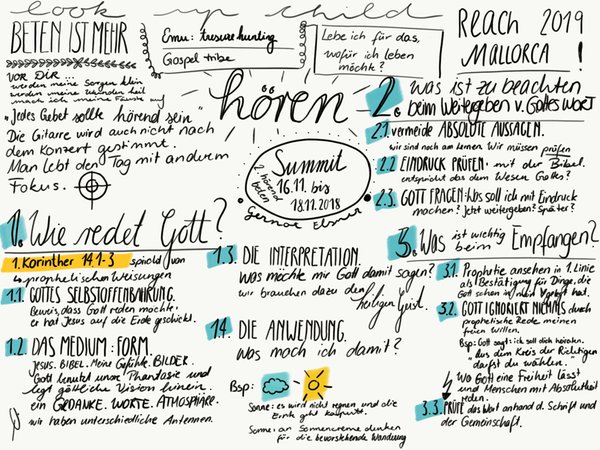 look up child
BETEN IST MEHR
VOR DIR ...
werden meine Sorgen klein
werden meine Wunden heil
mach ich meine Fäuste auf
"Jedes Gebet sollte hörend sein"
Die Gitarre wird auch nicht nach
dem Konzert gestimmt.
Man lebt den Tag mit anderm
Fokus.
Emu: tresure hunting
Gospel tribe
Lebe ich für das,
wofür ich leben
möchte?
REACH 2019
MALLORCA!
hören
Summit
16.11. bis
18.11.2018
hörend
beten
gernot Elsner
1. Wie redet Gott?
1. Korinther 14,1-3 spricht von
prophetischen Weisungen
1.1. GOTTES SELBSTOFFENBAHRUNG.
Beweis, dass Gott reden möchte:
er hat Jesus auf die Erde geschickt.
1.2. DAS MEDIUM: FORM
JESUS. BIBEL. Meine Gefühle. BILDER.
Gott benutzt unsre Phantasie und
legt göttliche Vision hinein.
ein GEDANKE. WORTE. ATMOSPHÄRE.
wir haben unterschiedliche Antennen.
1.3. DIE INTERPRETATION.
Was möchte mir Gott damit sagen?
wir brauchen dazu den
heiligen Geist.
1.4. DIE ANWENDUNG.
Was mach ich damit?
Bsp:
Sonne: es wird nicht regnen und die
Ernte geht kaputt.
Sonne: an Sonnencreme denken
für die bevorstehende Wanderung
2. was ist zu beachten
beim Weitergeben v. Gottes Wort
2.1. vermeide ABSOLUTE AUSSAGEN.
wir sind noch am lernen. Wir müssen prüfen
2.2 EINDRUCK PRÜFEN. mit der Bibel.
entspricht das dem Wesen Gottes?
2.3. GOTT FRAGEN: Was soll ich mit Eindruck
machen? Jetzt weitergeben? Später?
3. Was ist wichtig
beim Empfangen?
3.1. Prophetie ansehen in 1. Linie
als Bestätigung für Dinge, die
Gott schon in mich gelegt hat.
3.2. GOTT IGNORIERT NIEMALS durch
prophetische Rede meinen
freien Willen.
Bsp: Gott sagt: ich soll dich heiraten.
"aus dem Kreis der Richtigen
darfst du wählen."
Wo Gott eine Freiheit lässt
und Menschen mit Absolutheit
reden.
3.3. PRÜFE das Wort anhand d. Schrift und
der Gemeinschaft.